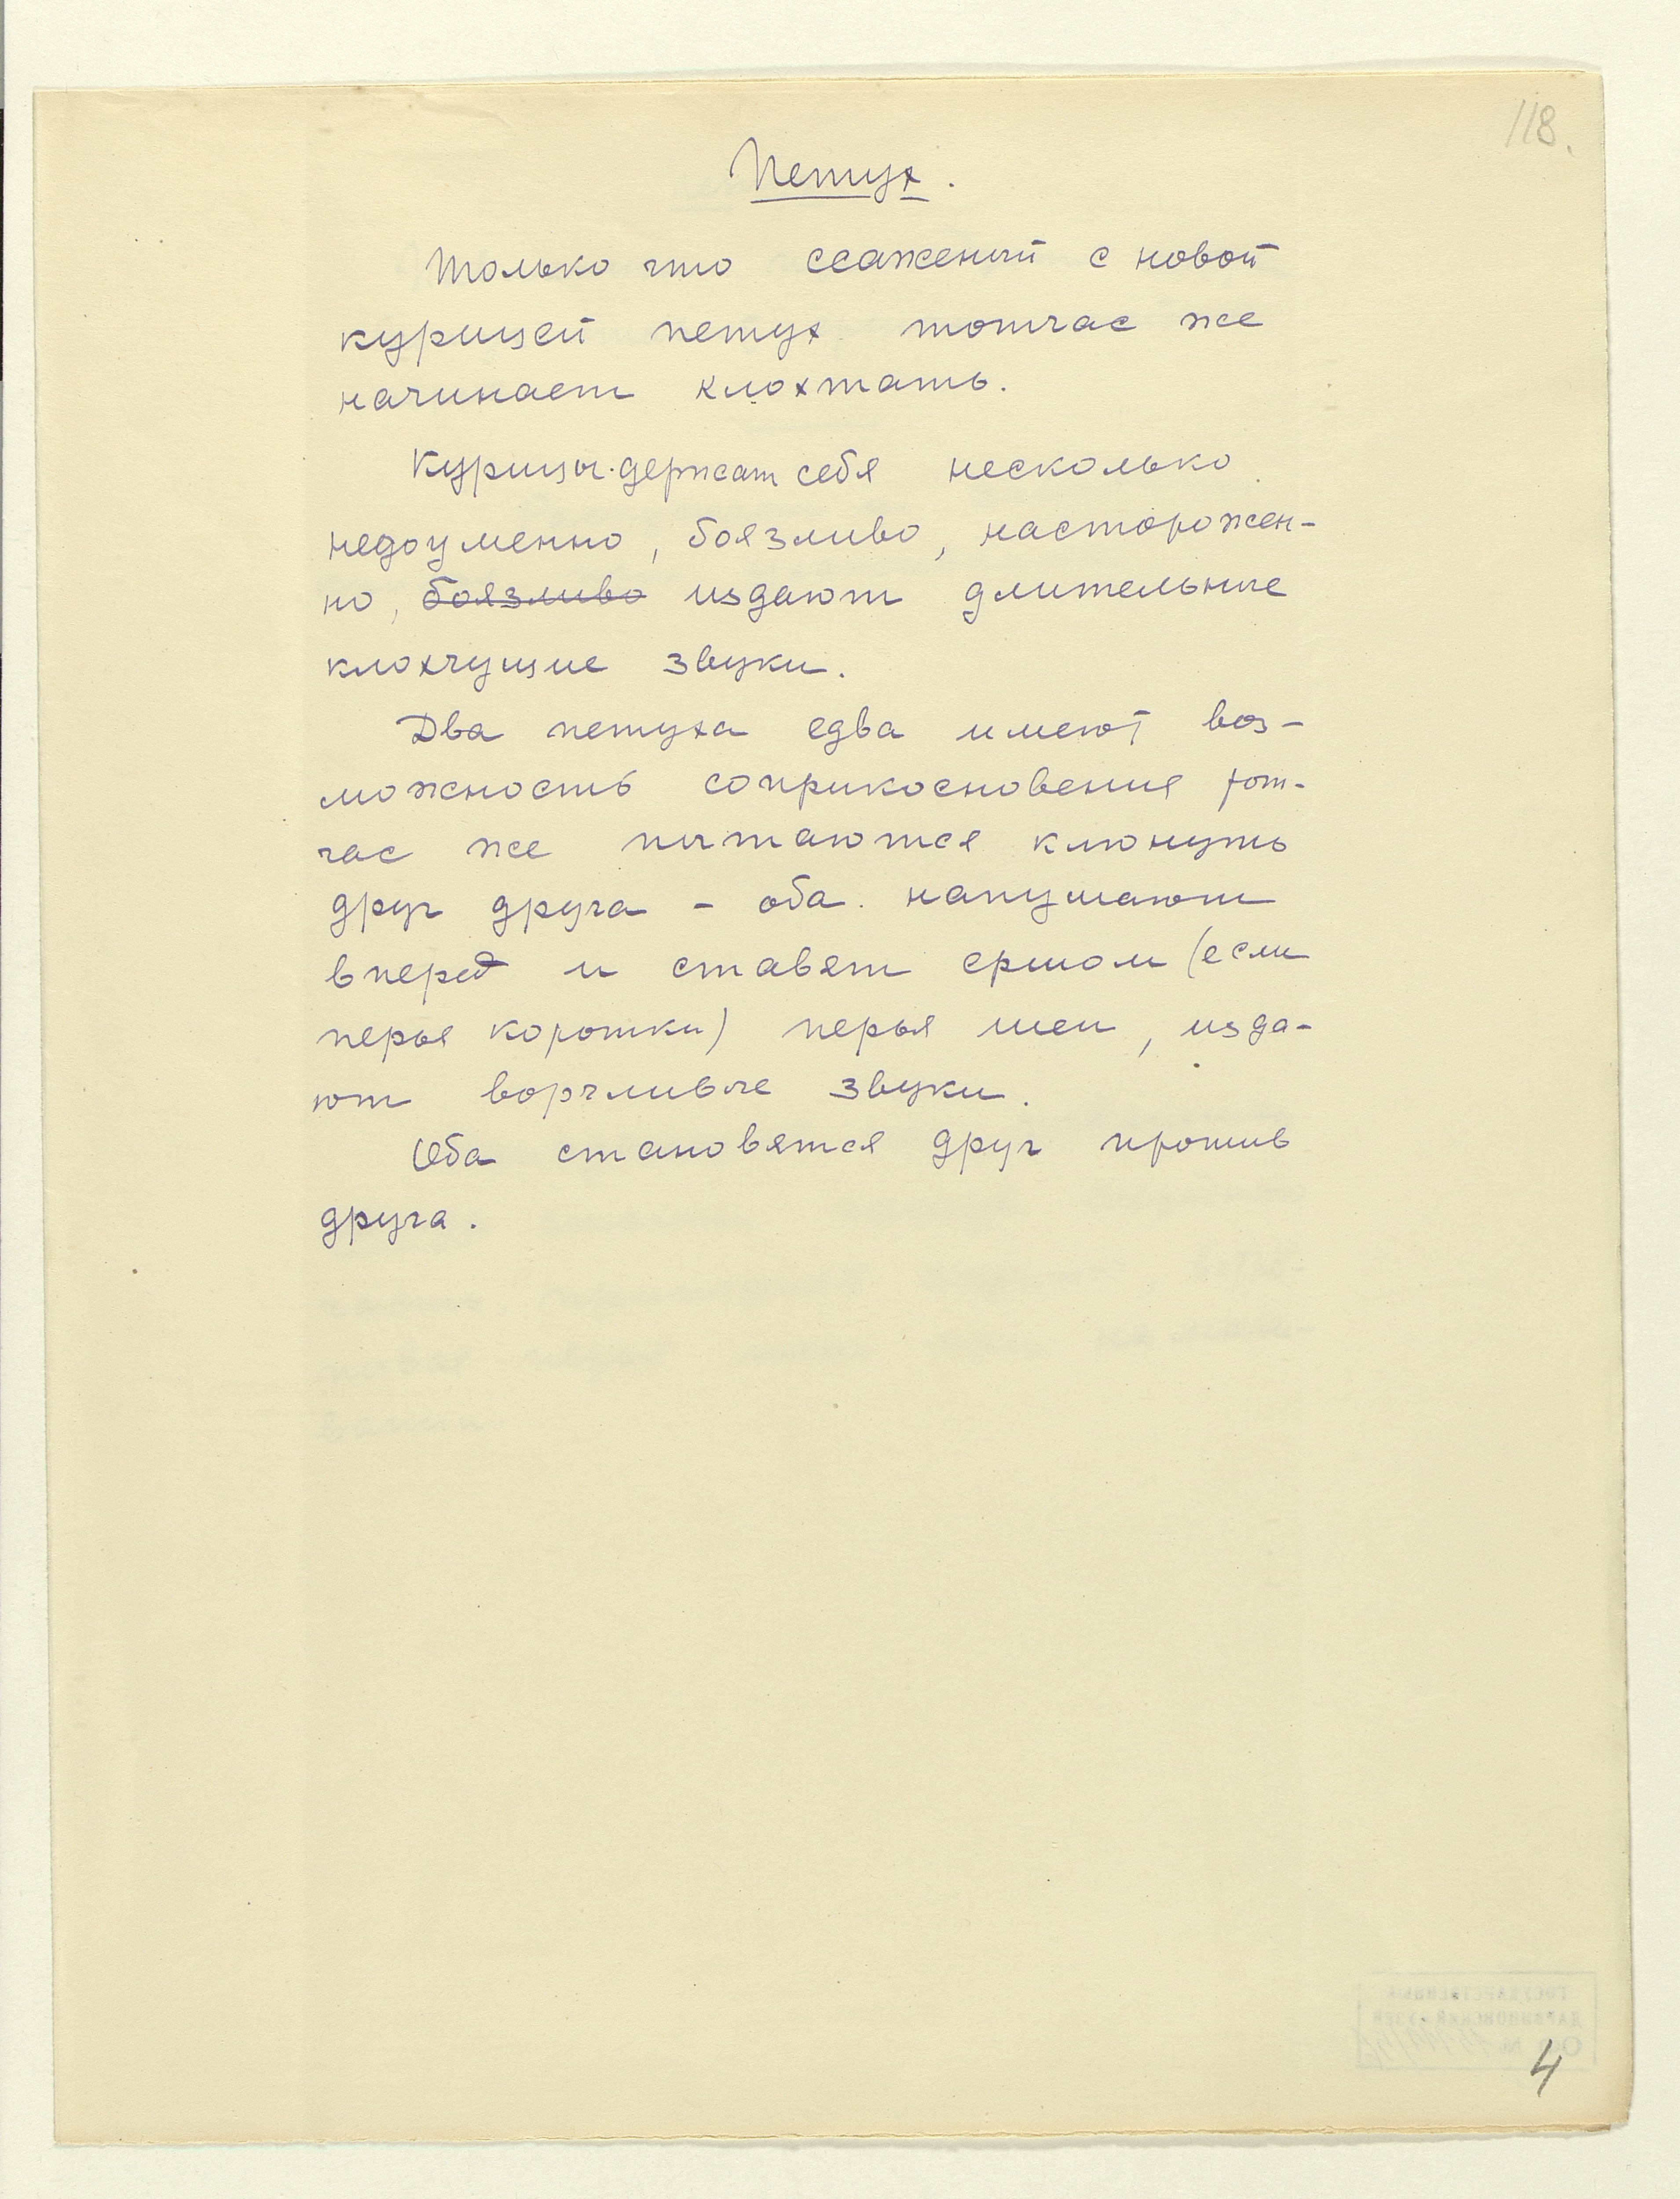 118.
Петух.
Только что ссаженый с новой
курицей петух тотчас же
начинает клохтать.
Курицы держат себя несколько
недоуменно, боязливо, насторожен-
но, боязливо издают длительные
клохчущие звуки.
Два петуха едва имеют воз-
можность соприкосновения тот-
час же пытаются клюнуть
друг друга - оба напушают
вперед и ставят ершом (если
перья коротки) перья шеи, изда-
ют ворчливые звуки.
Оба становятся друг против
друга.
4